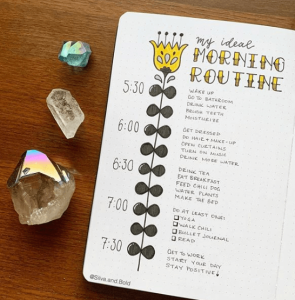 my ideal
MORNING
ROUTINE
5:30
WAKE UP
GO TO BATHROOM
DRINK WATER
BRUSH TEETH
MOISTURIZE
6:00
GET DRESSED
DO HAIR + MAKE-UP
OPEN CURTAINS
TURN ON MUSIC
DRINK MORE WATER
6:30
DRINK TEA
EAT BREAKFAST
FEED CHILI DOG
WATER PLANTS
MAKE THE BED
7:00
DO AT LEAST ONE:
YOGA
WALK CHILI
BULLET JOURNAL
READ
7:30
GET TO WORK
START YOUR DAY
STAY POSITIVE!
@Silva.and.Bold